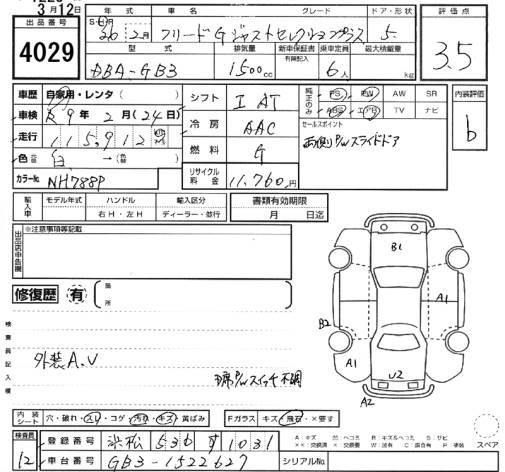 3月12日
出品番号
4029
年式 車名 グレード ドア・形状
S・H 26年2月 フリード G ジャストセレクションプラス 5
型式 排気量 新車保証書 乗車定員 最大積載量
有 記入
DBA-GB3 1500cc 6人 kg
評価点
3.5
内装評価
b
車歴 自家用・レンタ( )
車検 R9年2月(24日)
走行 115,912
色 白 →(色替)
カラーNo NH788P
シフト I AT
冷房 AAC
燃料 G
リサイクル料金 11,760円
純正のみ PS PW AW SR
ABS エアB TV ナビ
セールスポイント
両側P/Wスライドドア
輸入車 モデル年式 ハンドル 輸入区分
年 右H・左H ディーラー・並行
書類有効期限
月 日迄
出品店申告欄
※注意事項等記載
修復歴 有 箇所
検査員記入欄
外装A.U
P/Wスイッチ不調
B1
A1
B2
A1
U2
A2
内装シート 穴・破れ・スレ・コゲ・汚れ・キズ・黄ばみ
Fガラス キズ・飛石・×要す
検査員
12
登録番号 浜松 536 す 1031
車台番号 GB3-1522627
シリアルNo.
スペア